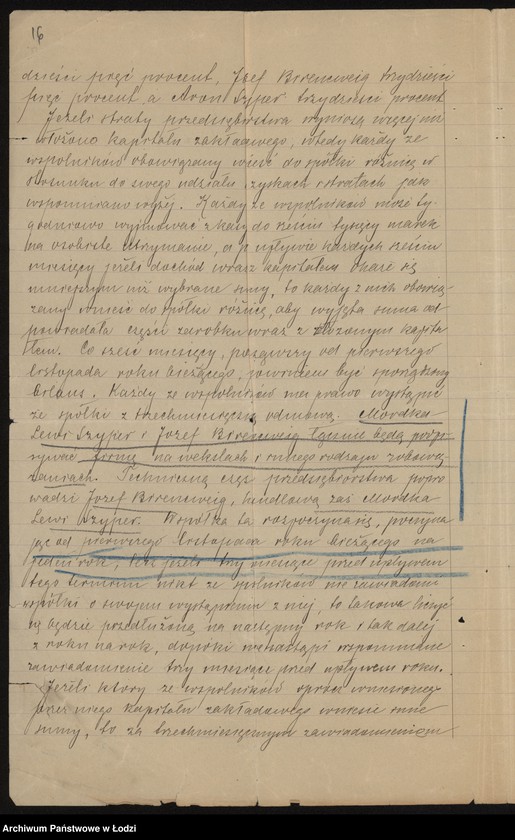 16
dzieści pięć procent, Józef Birencweig trzydzieści
pięć procent, a Aron Szyper trzydzieści procent
Jeżeli straty przedsiębiorstwa wyniosą więcej niż
włożono kapitału zakładowego, wtedy każdy ze
wspólników obowiązany wnieść do spółki różnicę w
stosunku do swego udziału w zyskach i stratach jako
wspomniano wyżej. Każdy ze wspólników może ty-
godniowo wyjmować z kasy do sześciu tysięcy marek
na osobiste utrzymanie, a po upływie każdych sześciu
miesięcy jeżeli dochód wraz z kapitałem okaże się
mniejszym niż wybrane sumy, to każdy z nich obowią-
zany wnieść do spółki różnicę, aby wyjęta suma od-
powiadała części zarobku wraz z złożonym kapita-
łem. Co sześć miesięcy, począwszy od pierwszego
listopada roku bieżącego, powinien być sporządzony
bilans. Każdy ze wspólników ma prawo wystąpić
ze spółki z trzechmiesięczną odmową. Mordka
Lewi Szyper i Józef Birencweig łącznie będą podpi-
sywać firmę na wekslach i innego rodzaju zobowią-
zaniach. Techniczną część przedsiębiorstwa popro-
wadzi Józef Birencweig, handlową zaś Mordka
Lewi Szyper. Spółka ta rozpoczyna się, poczyna-
jąc od pierwszego listopada roku bieżącego na
jeden rok, lecz jeżeli trzy miesiące przed upływem
tego terminu nikt ze spólników nie zawiadomi
spółki o swojem wystąpieniu z niej, to takowa liczyć
się będzie przedłużoną na następny rok i tak dalej
z roku na rok, dopóki nie nastąpi wspomniane
zawiadomienie trzy miesiące przed upływem roku.
Jeżeli który ze wspólników oprócz wniesionego
przez niego kapitału zakładowego wniesie inne
sumy, to za trzechmiesięcznym zawiadomieniem
Archiwum Państwowe w Łodzi